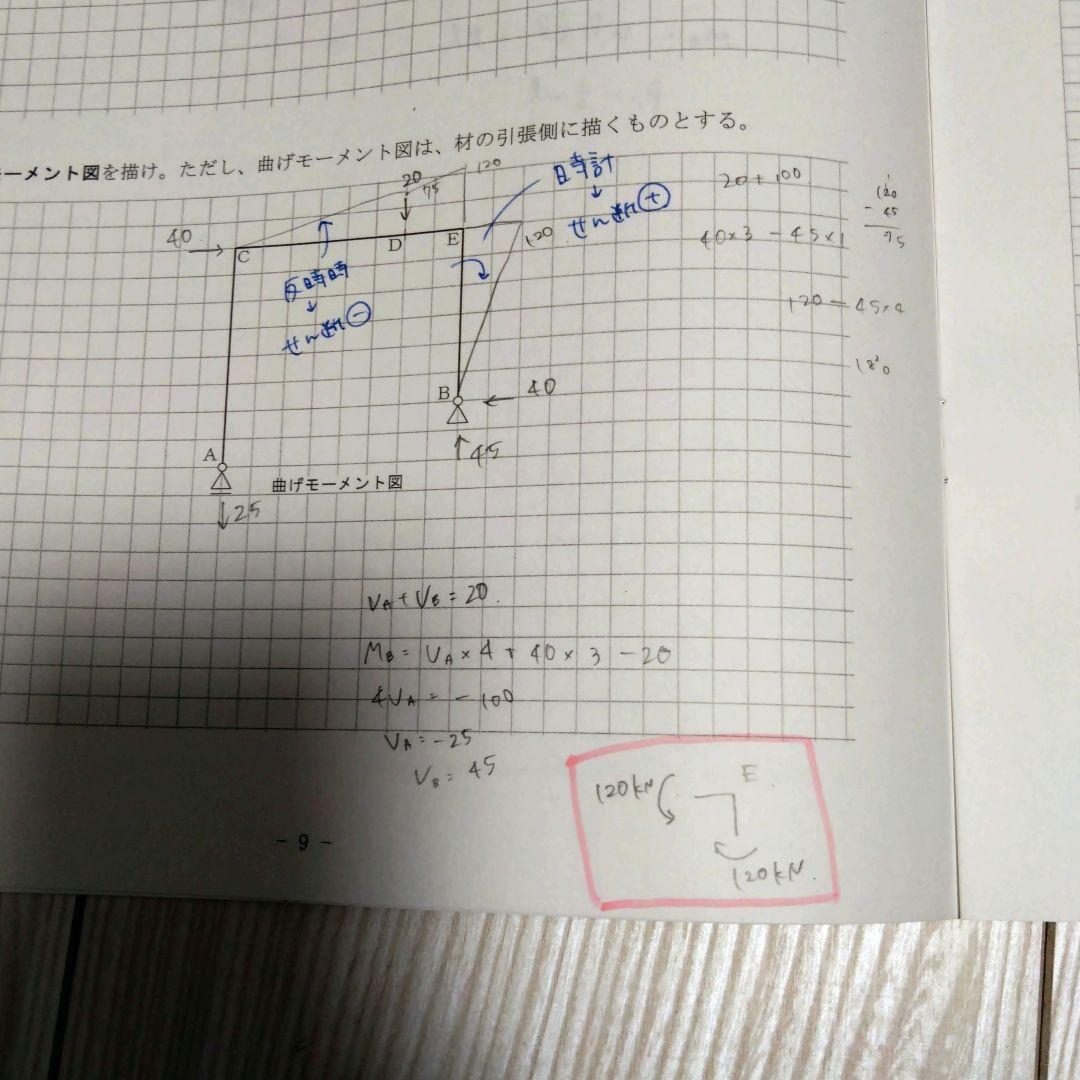 ーメント図を描け。ただし、曲げモーメント図は、材の引張側に描くものとする。
20
75
120
日時計
↓
せん断⊕
20+100
120
- 45
75
40
C
D
E
120
40×3 - 45×1
反時時
↓
せん断⊖
120 - 45×4
180
B
40
45
A
25
曲げモーメント図
VA + VB = 20.
MB = VA × 4 + 40 × 3 - 20
4VA = - 100
VA = -25
VB = 45
120kN
E
120kN.
- 9 -